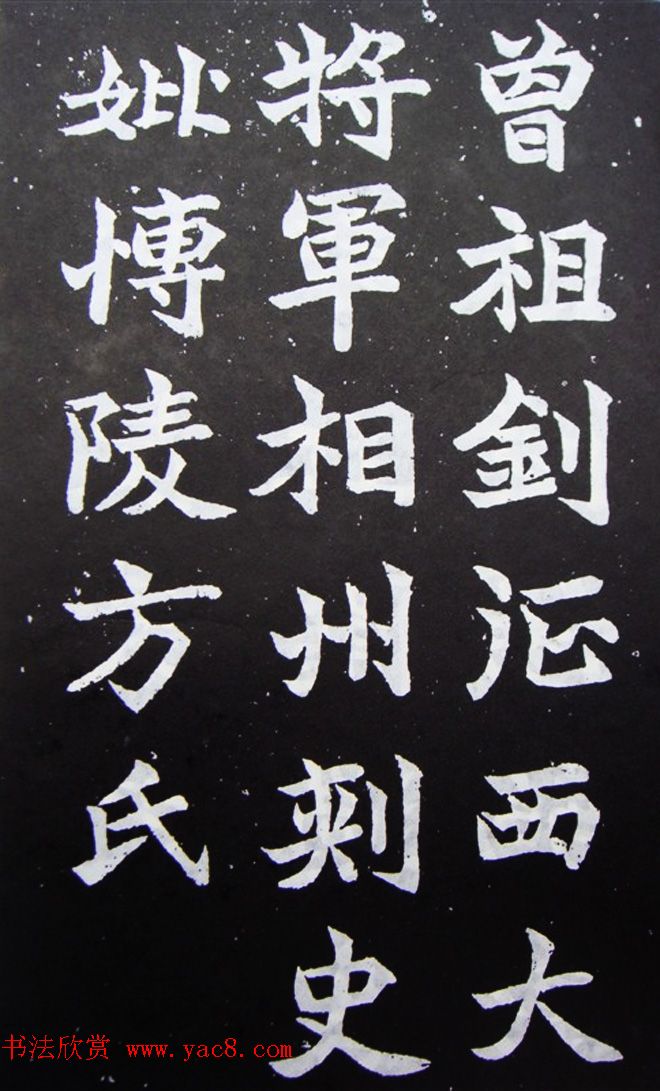 曾祖釗征西大
將軍相州刾史
妣愽陵方氏
书法欣赏 www.yac8.com